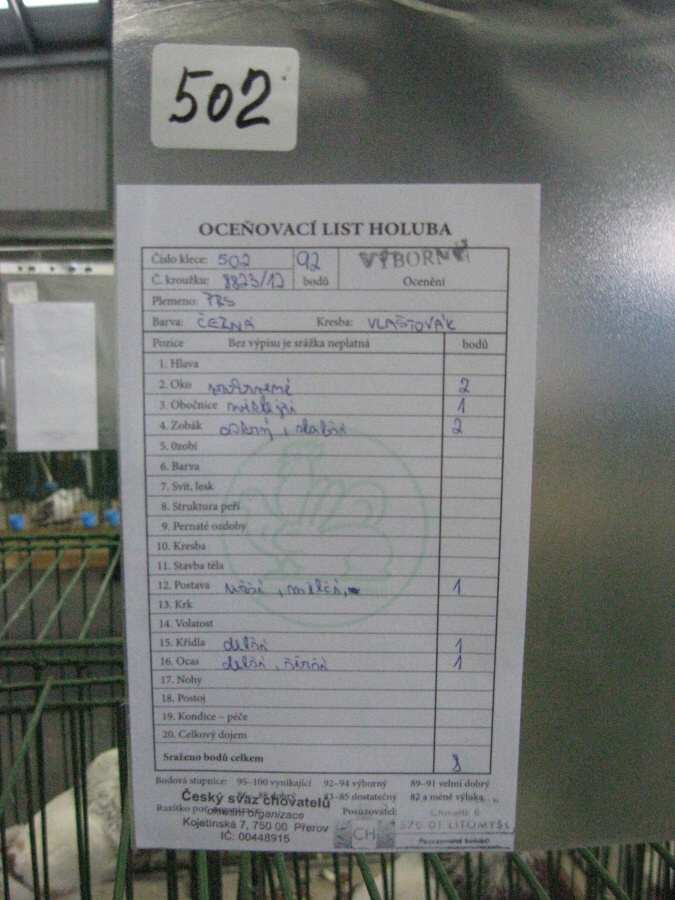 502
OCEŇOVACÍ LIST HOLUBA
Číslo klece: 502 92 VÝBORNÝ
Č. kroužku: 8823/12 bodů Ocenění
Plemeno:
Barva: ČERNÁ Kresba: VLAŠTOVÁK
Pozice Bez výpisu je srážka neplatná bodů
1. Hlava
2. Oko 2
3. Obočnice 1
4. Zobák 2
5. Ozobí
6. Barva
7. Svit, lesk
8. Struktura peří
9. Pernaté ozdoby
10. Kresba
11. Stavba těla
12. Postava 1
13. Krk
14. Volatost
15. Křídla delší 1
16. Ocas delší, širší 1
17. Nohy
18. Postoj
19. Kondice – péče
20. Celkový dojem
Sraženo bodů celkem 8
Bodová stupnice: 95–100 vynikající 92–94 výborný 89–91 velmi dobrý
86–88 dobrý 83–85 dostatečný 82 a méně výluka
Český svaz chovatelů
Razítko Posuzovatel:
organizace
Kojetínská 7, 750 00 Přerov
IČ: 00448915
CH
570 01 LITOMYŠL